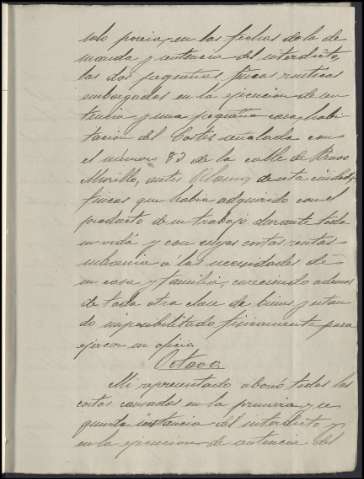 solo poseia, en las fechas de la de
manda y sentencia del interdicto,
las dos pequeñas fincas rusticas
embargadas en la ejecucion de sen
tencia y una pequeña casa habi
tacion del señalada con
el número 83 de la calle de Bravo
Murillo, antes de esta ciudad,
fincas que habia adquirido con el
producto de su trabajo durante toda
su vida y con cuyas cortas rentas
subvenia á las necesidades de
su casa y familia, careciendo ademas
de toda otra clase de bienes y estan
do imposibilitado fisicamente para
ejercer su oficio.
Octavo.
Mi representado abonó todas las
costas causadas en la primera y se
gunda instancia del interdicto y
en la ejecucion de sentencia del